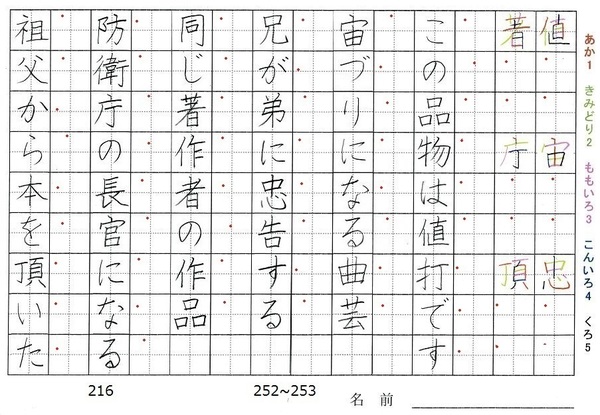 あか1 きみどり2 ももいろ3 こんいろ4 くろ5
値 宙 忠
著 庁 頂
この品物は値打です
宙づりになる曲芸
兄が弟に忠告する
同じ著作者の作品
防衛庁の長官になる
祖父から本を頂いた
216 252~253 名前